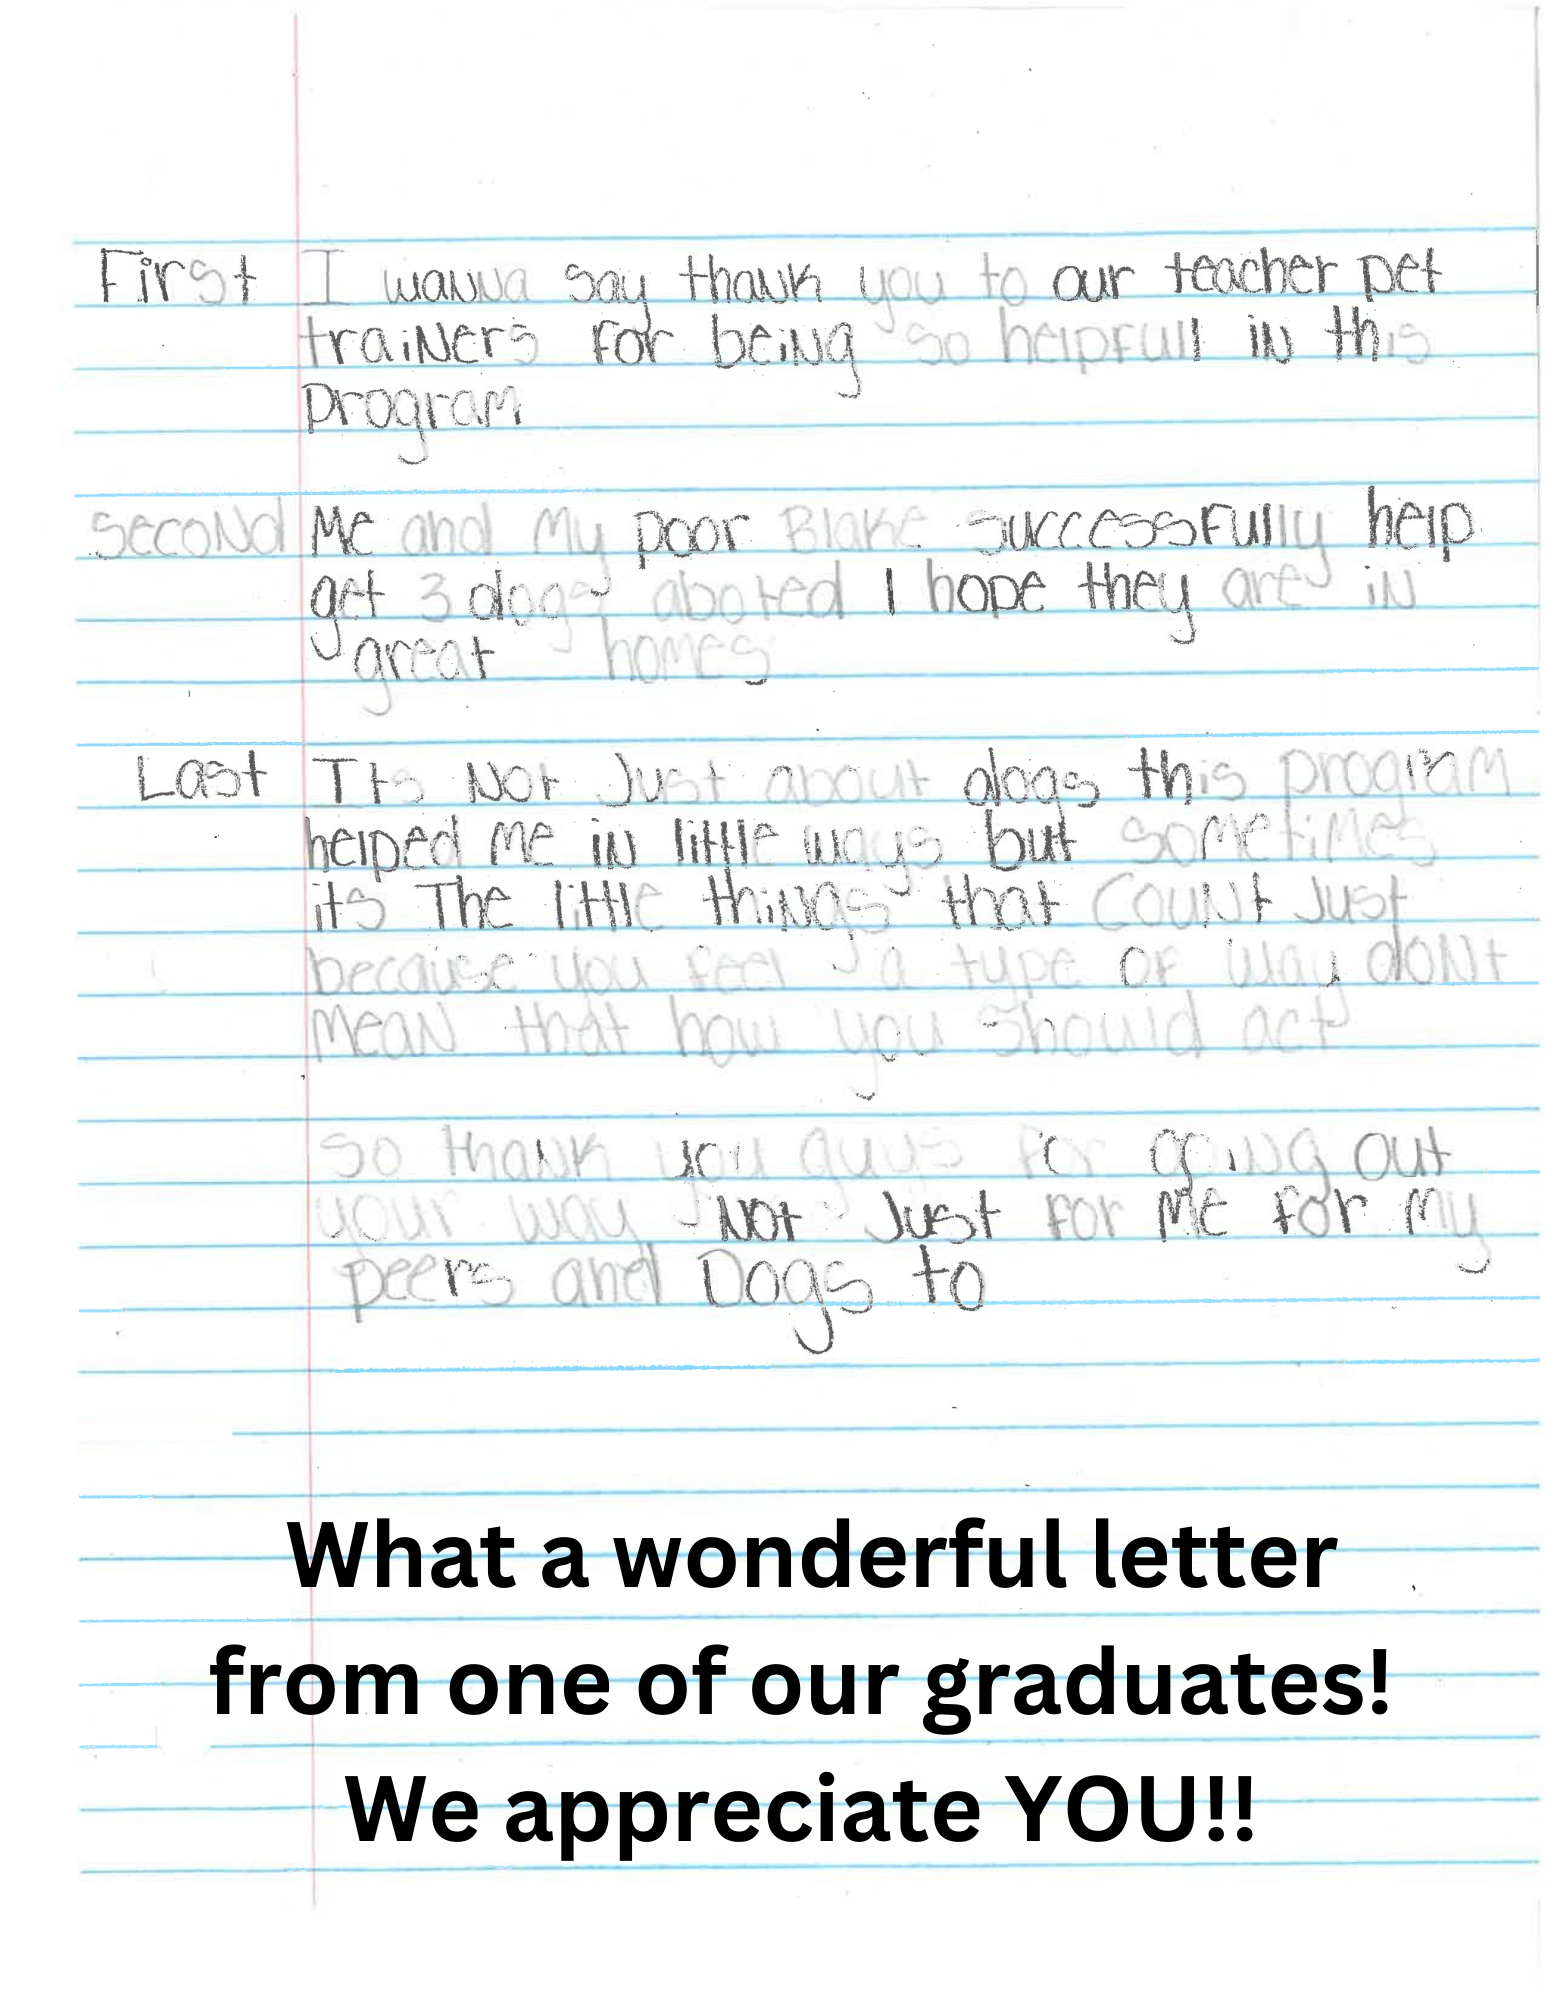 First I wanna say thank you to our teacher pet
trainers for being so helpfull in this
program
Second Me and My poor Blake successfully help
get 3 dogs aboted I hope they are in
great homes
Last Its Not Just about dogs this program
helped me in little ways but sometimes
its The little things that Count Just
because you feel a type of way dont
mean that how you should act
so thank you guys for going out
your way Not Just for Me for My
peers and Dogs to
What a wonderful letter
from one of our graduates!
We appreciate YOU!!